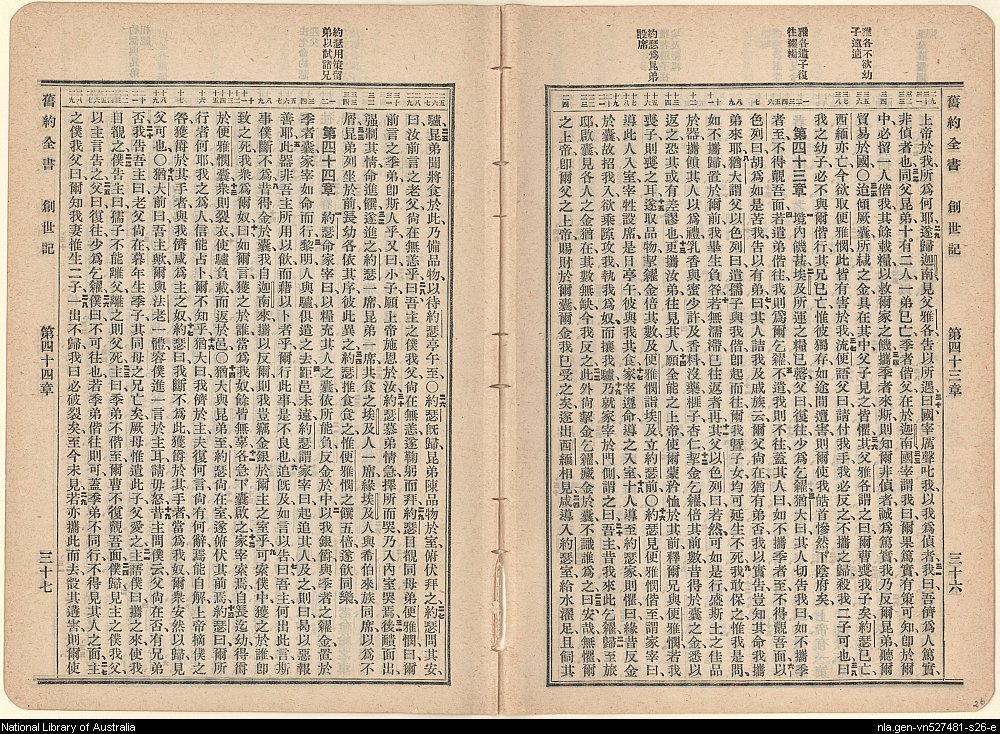 雅各不欲幼子遠適
雅各遣子復往糴糧
約瑟為昆弟設席
舊約全書 創世記 第四十三章 三十六
上帝於我所為何耶遂歸迦南見父雅各告以所遇曰國宰厲聲叱我以我為偵者我曰吾儕為人篤實
非偵者也同父昆弟十有二人一弟已亡季者偕父在於迦南國宰謂我曰爾果篤實有策可知卽於爾
中必留一人偕我其餘載糧以救爾家之饑攜季者來斯則知爾非偵者誠為篤實我乃反爾昆弟聽爾
貿易於國○迨傾厥囊所緘之金具在其中父子見之皆懼其父雅各謂之曰爾曹喪我子矣約瑟已亡
西緬亦亡今欲取便雅憫此皆有害於我流便語父曰請付我手我必反之不攜之歸殺我二子可也曰
我之幼子必不與爾偕行其兄已亡惟彼獨存如途間遭害則爾使我皓首慘然下陰府矣
第四十三章 境內饑甚埃及所運之糧已罄父曰復往少為乞糴猶大曰其人切告我曰如不攜季
者至不得覲吾面若遣弟偕往我則為爾乞糴不遣我則不往蓋其人曰如不攜季者至不得覲吾面以
色列曰胡為如是苦我告以有弟曰其人詰我及戚族云爾父尚在猶有弟否我以實告豈知其命我攜
弟來耶猶大謂父以色列曰遣孺子與我偕卽起而往爾我暨子女均可延生不死我敢保之惟我是問
如不攜歸置於爾前我畢生負咎若無濡滯已往返者再其父以色列曰若然可如是行盛斯土之佳品
於器攜饋其人以為禮乳香與蜜少許及香料沒藥榧子杏仁挈金倍其前數昔得於囊之金悉以
返之恐其或有差謬也更攜汝弟往見其人願全能之上帝使爾蒙矜恤於其前釋爾兄與便雅憫若我
喪子則喪之耳遂取品物挈糴金倍其數及便雅憫詣埃及立約瑟前○約瑟見便雅憫偕至謂家宰曰
導此人入室宰牲設席是日亭午彼與我共食家宰遵命導之入室十人導至約瑟家則懼曰緣昔反金
於囊故招我入欲乘隙攻我執我為奴而攘我驢乃就家宰於門側謂之曰吾主昔我來此乞糴歸至旅
邸啟囊見各人之金猶在其數無缺今我反之此外尚挈金乞糴藏金於囊不識誰為之曰安哉無懼爾
之上帝卽爾父之上帝賜財於爾囊爾金我已受之矣遂出西緬相見咸導入約瑟室給水濯足且飼其
26
約瑟用策留弟以試諸兄
驢昆弟聞將食於此乃備品物以待約瑟亭午至○約瑟旣歸昆弟陳品物於室俯伏拜之約瑟問其安
曰汝前言之老父尚在無恙乎曰吾父爾僕尚在無恙遂鞠躬而拜約瑟目覩同母弟便雅憫曰爾
前言之季弟卽斯人乎又曰小子願上帝施恩於汝約瑟慕弟情急擇所而哭乃入內室哭焉後靧面出
强制其情命進饌遂進之約瑟一席昆弟一席共食之埃及人一席緣埃及人與希伯來族同席以為不
屑昆弟列坐於前長幼各依其序彼此異之約瑟推食食之惟便雅憫之饌五倍遂飲同樂
第四十四章 約瑟命家宰曰以糧充其人之囊依所能負反金於囊中以我銀爵與季者之糴金置於
季者囊家宰如命而行黎明人與驢俱遣之去距邑未遠約瑟謂家宰曰起追其人及之則曰曷以惡報
善耶此器非吾主所用以飲而藉以卜者乎爾行此事是不良也追旣及如言以告曰吾主何出此言斯
事僕斷不為昔得金於囊我自迦南來攜以反爾則我豈竊金銀於爾主之室乎可索僕中獲之於誰卽
致之死我衆為爾奴曰如爾言獲之於誰當為我奴餘皆無辜各急下囊啟之家宰索焉自長迄幼得爵
於便雅憫囊衆則裂衣使驢負載而返於邑○猶大與昆弟至約瑟室約瑟尚在室遂俯伏其前約瑟曰爾所
行者何耶我之為人信能占卜爾不知乎猶大曰我儕於主夫復何言尚有何辭焉能自解上帝摘僕之
咎獲爵於其手者與我儕咸為主之奴約瑟曰我斷不為此獲爵於其手者當為我奴爾衆安然以歸見
父可也○猶大前曰吾主歟爾與法老一體容僕進一言於主耳請毋怒昔主問僕云父尚在否有兄弟
否我告吾主曰老父尚在暮年生季子其同母之兄亡矣厥母惟遺此子父愛之主曰攜之來俾我
目覩之僕告主曰孺子不能離父離之則父死主曰季弟不偕至爾曹不復覿吾面僕歸見主之僕我父
以主言告之父曰復往少為乞糴僕曰不可往也若季弟偕往則可蓋季弟不同行不得見其人之面主
之僕我父曰爾知我妻惟生二子一出不歸我曰必破裂矣至今未見若亦攜此而去設其遘害則爾使
舊約全書 創世記 第四十四章 三十七
National Library of Australia
nla.gen-vn527481-s26-e